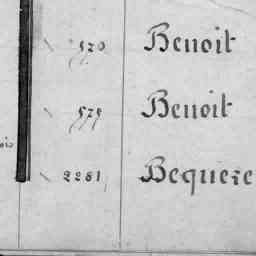 520 Benoit
575 Benoit
2281 Bequere